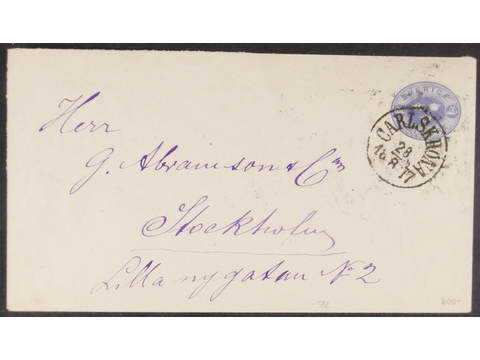 SVERIGE
CARLSKRONA
28
Herr
G. Abramson & Co
Stockholm
Lilla nygatan No 2